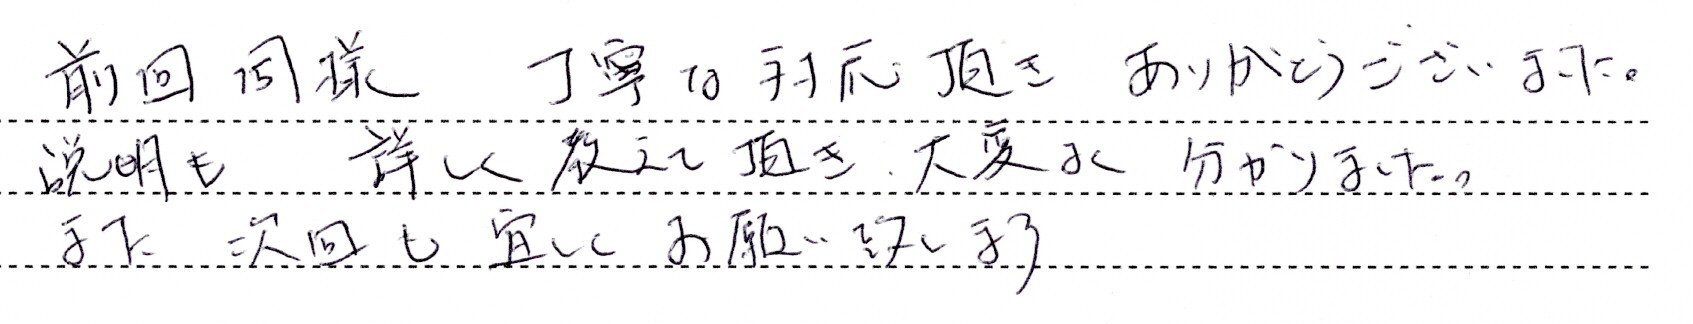 前回同様 丁寧な対応頂き ありがとうございました。
説明も 詳しく教えて頂き 大変よく 分かりました。
また 次回も 宜しく お願い致します